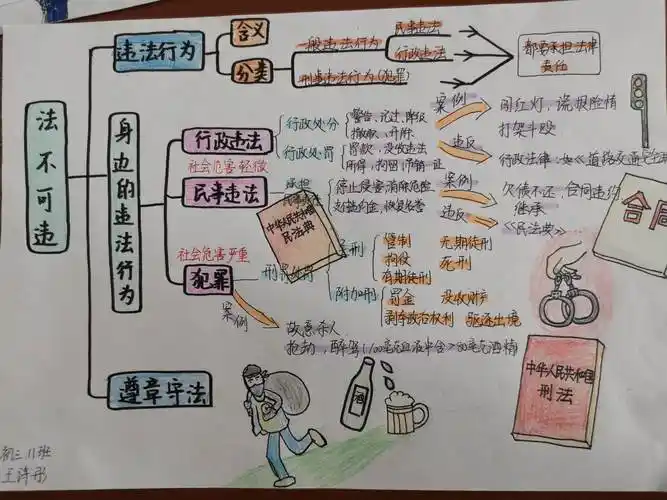 法不可违
违法行为
含义
分类
一般违法行为
民事违法
行政违法
刑事违法行为(犯罪)
都要承担法律
责任
身边的违法行为
行政违法
社会危害轻微
行政处分
警告、记过、降级
撤职、开除
行政处罚
罚款、没收违法
所得、拘留
案例
闯红灯、谎报险情
打架斗殴
违反
行政法律:如《道路交通安全
民事违法
承担
停止侵害 消除危险
案例
欠债不还、合同违约
继承
违反
《民法典》
中华人民共和国
民法典
合同
社会危害严重
犯罪
刑罚
主刑
管制
无期徒刑
拘役
死刑
有期徒刑
附加刑
罚金
没收财产
剥夺政治权利
驱逐出境
案例
故意杀人
抢劫、醉驾
遵章守法
酒
中华人民共和国
刑法
初三11班